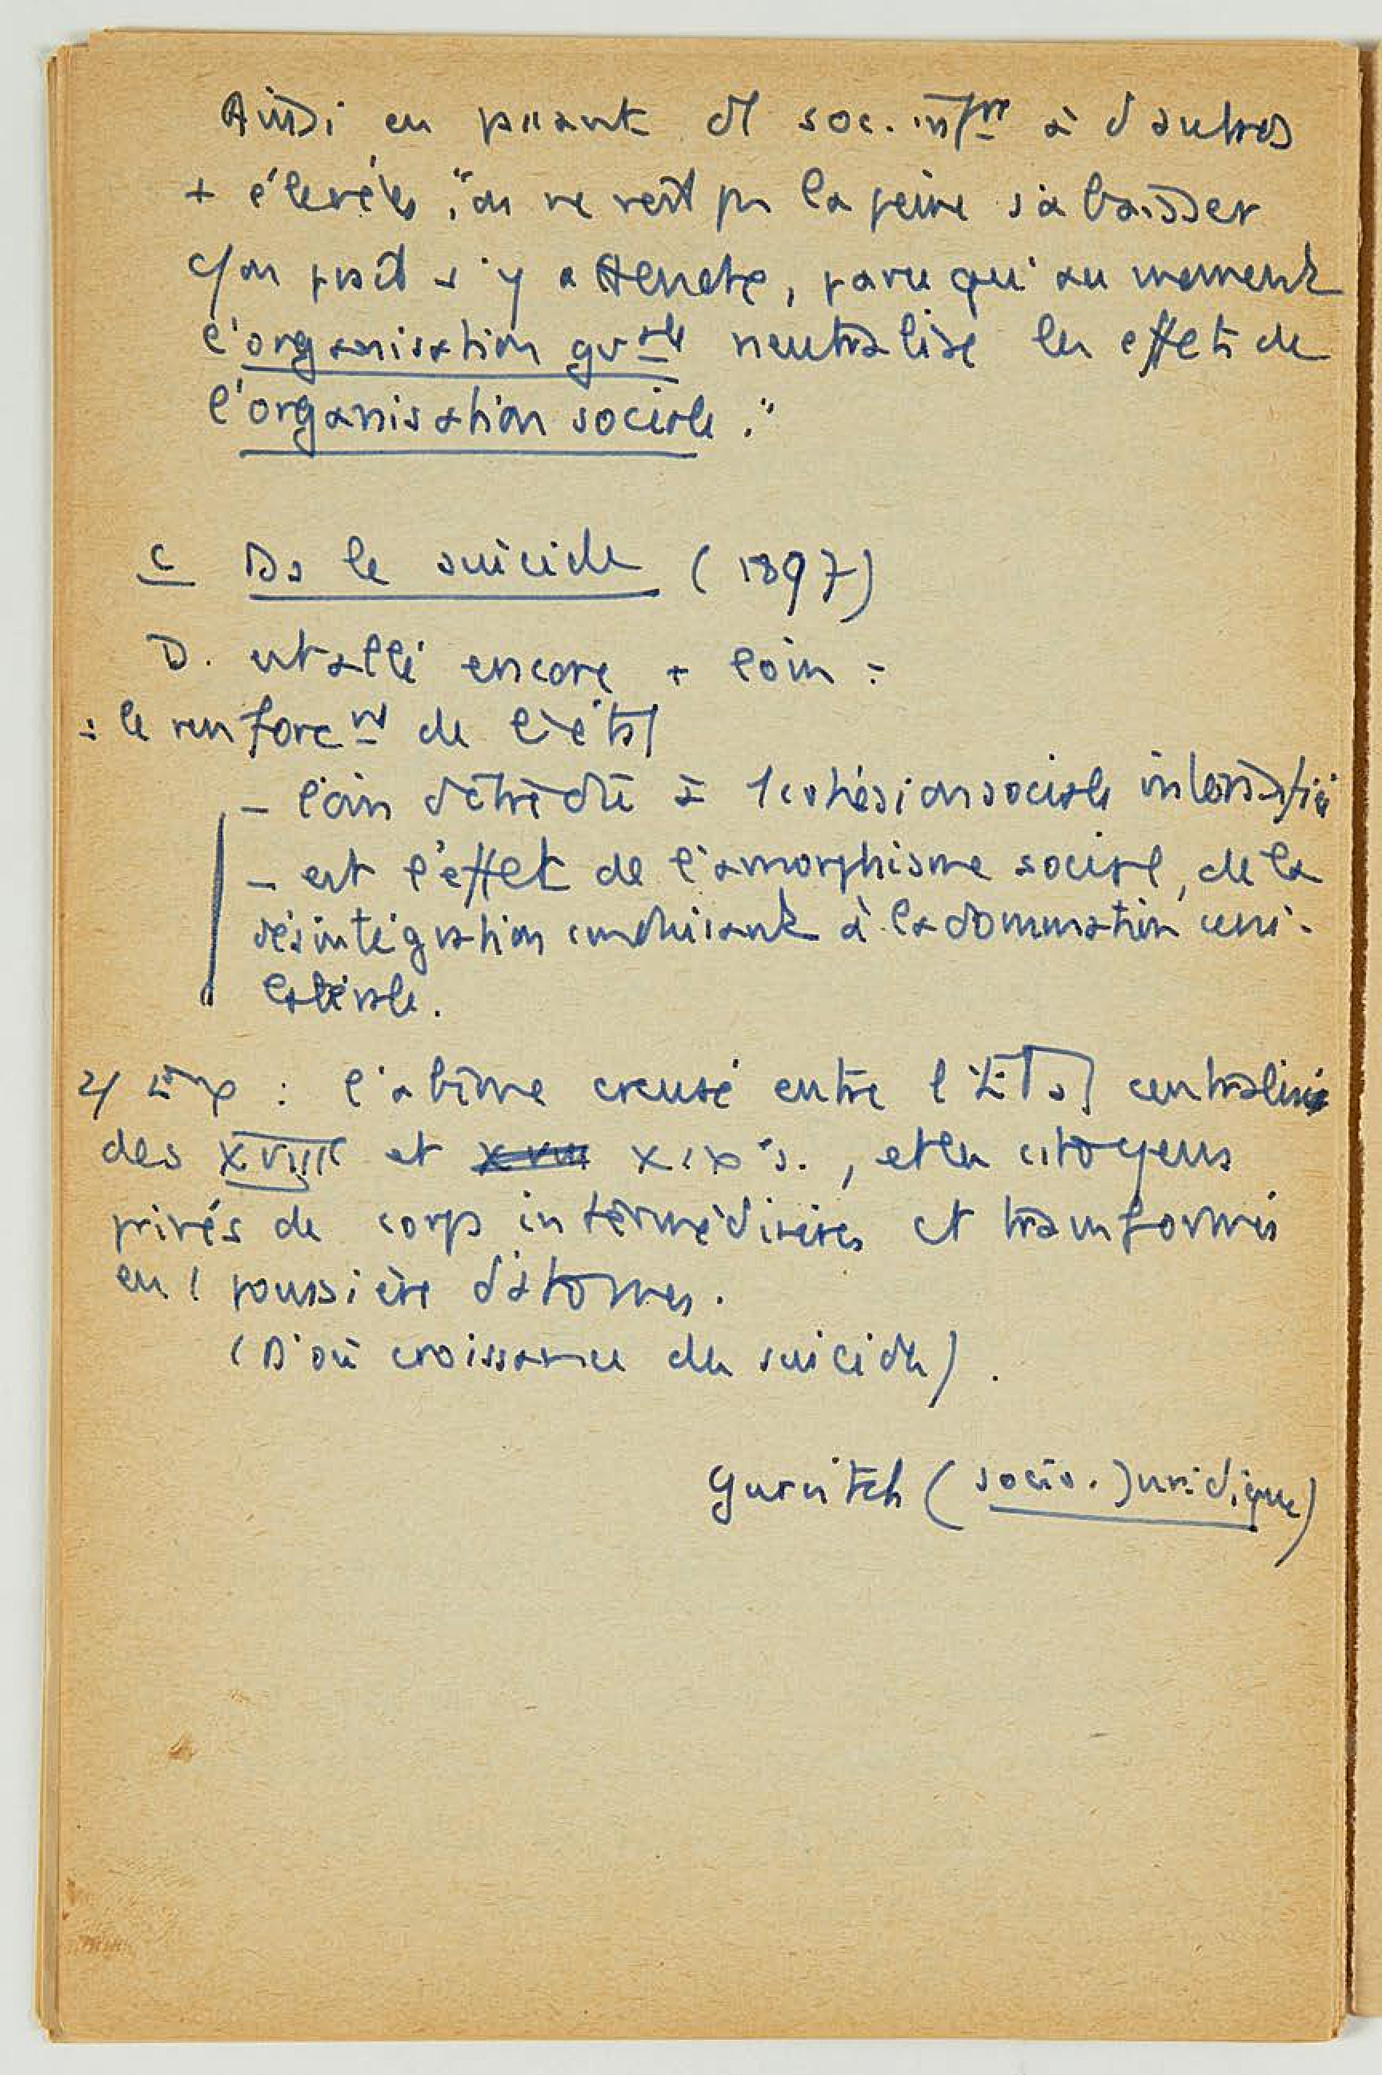 Ainsi en passant d'1 soc. infre à d'autres
+ élevées, "on ne voit pas la peine s'abaisser
c/on pvait s'y attendre, parce qu'au moment
l'organisation gvale neutralise les effets de
l'organisation sociale."
C Ds le suicide (1897)
D. est allé encore + loin :
: le renforcnt de l'état
- loin d'être dû à 1 cohésion sociale intensifiée
- est l'effet de l'amorphisme social, de la
désintégration conduisant à la domination uni-
latérale.
2/ Exp : l'abîme creusé entre l'Etat centralisé
des XVIII et XVIII XIX°s., et les citoyens
privés de corps intermédiaires et transformés
en 1 poussière d'atomes.
(D'où croissance du suicide).
Gurvitch (socio. Juridique)